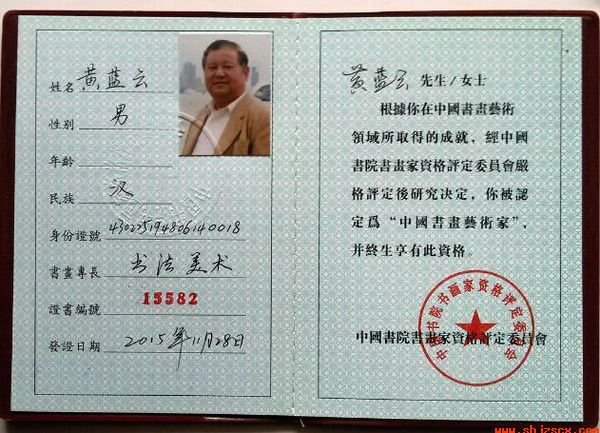 姓名 黄蓝云
性别 男
年齡
民族 汉
身份證號
書畫專長 书法美术
證書編號 15582
發證日期 2015年11月28日
黄蓝云 先生/女士
根據你在中國書畫藝術
領域所取得的成就，經中國
書院書畫家資格評定委員會嚴
格評定後研究决定，你被認
定爲“中國書畫藝術家”，
并終生享有此資格。
中國書院書畫家資格評定委員會
中国书院书画家资格评定委员会
www.shjzscx.com